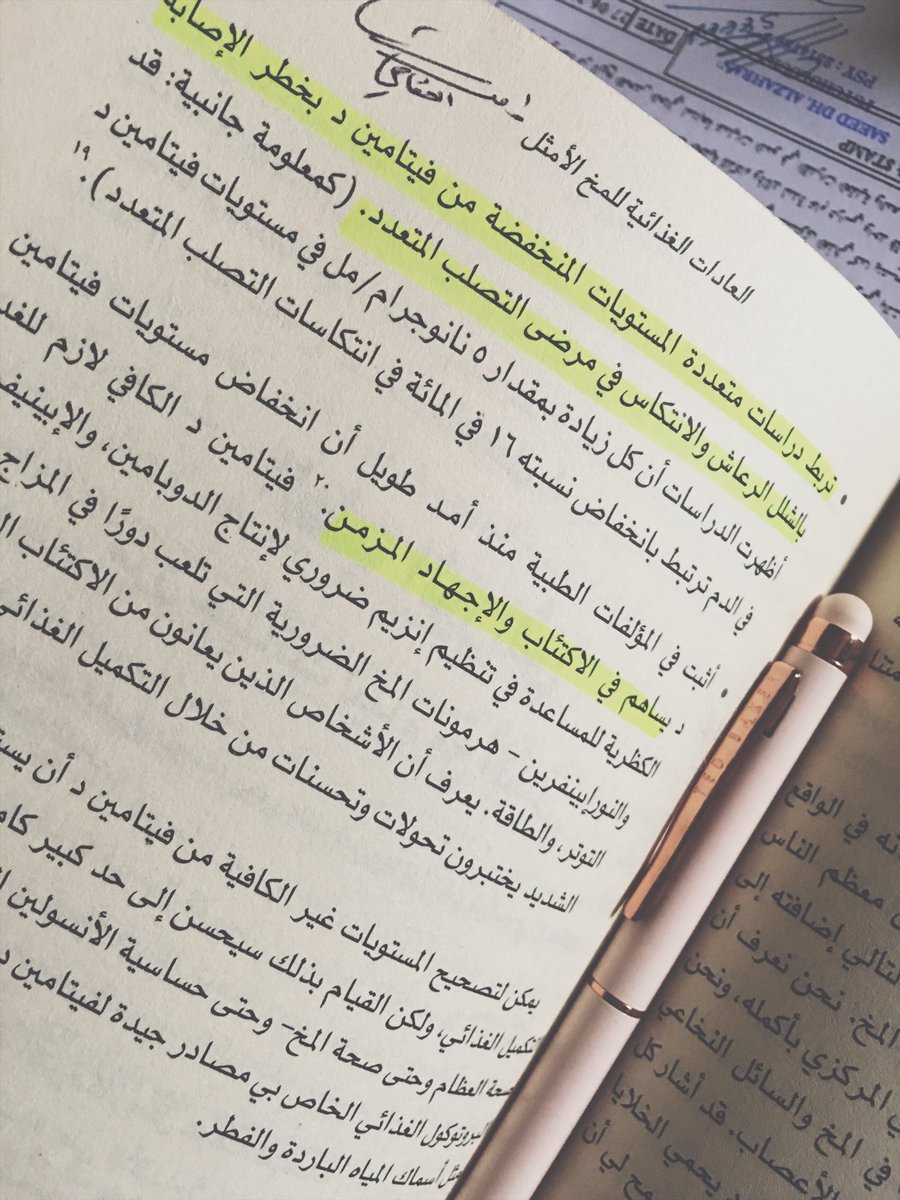 العادات الغذائية للمخ الأمثل
• تربط دراسات متعددة المستويات المنخفضة من فيتامين د بخطر الإصابة
بالشلل الرعاش والانتكاس في مرضى التصلب المتعدد. (كمعلومة جانبية: قد
أظهرت الدراسات أن كل زيادة بمقدار ٥ نانوجرام/مل في مستويات فيتامين د
في الدم ترتبط بانخفاض نسبته ١٦ في المائة في انتكاسات التصلب المتعدد). ١٩
• أثبت في المؤلفات الطبية منذ أمد طويل أن انخفاض مستويات فيتامين
د يساهم في الاكتئاب والإجهاد المزمن. ٢٠ فيتامين د الكافي لازم للغد
الكظرية للمساعدة في تنظيم إنزيم ضروري لإنتاج الدوبامين، والإبينيف
والنورإبينفرين – هرمونات المخ الضرورية التي تلعب دورًا في المزاج
التوتر، والطاقة. يعرف أن الأشخاص الذين يعانون من الاكتئاب
الشديد يختبرون تحولات وتحسنات من خلال التكميل الغذائي
يمكن لتصحيح المستويات غير الكافية من فيتامين د أن
لتكميل الغذائي، ولكن القيام بذلك سيحسن إلى حد كبير
صحة العظام وحتى صحة المخ – وحتى حساسية الأنسولين
البروتوكول الغذائي الخاص بي مصادر جيدة لفيتامين د
مثل أسماك المياه الباردة والفطر.
نه في الواقع
معظم الناس
لتالي إضافته إلى
المخ. نحن نعرف أن
المركزي بأكمله، ونحن
في المخ والسائل النخاعي
الأعصاب. قد أشار كل
يحمي الخلايا
أن
STAMP
DATE
SAEED DH ALZAHRANI